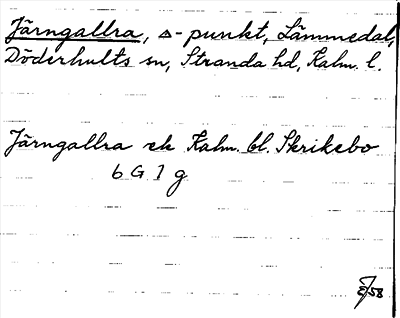 Järngallra, △-punkt, Lämmedal,
Döderhults sn, Stranda hd, Kalm. l.
Järngallra ek Kalm. bl. Skrikebo
6 G 1 g
58